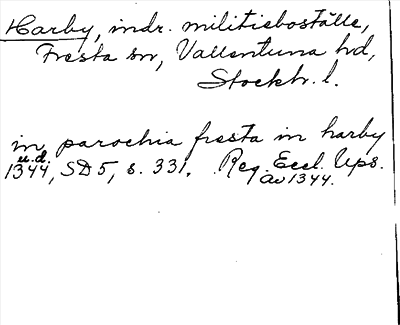 Harby, indr. militieboställe,
Fresta sn, Vallentuna hd,
Stockh. l.
in parochia fresta in harby
u.d.
1344, SD 5, s. 331. Reg. Eccl. Ups.
av 1344.